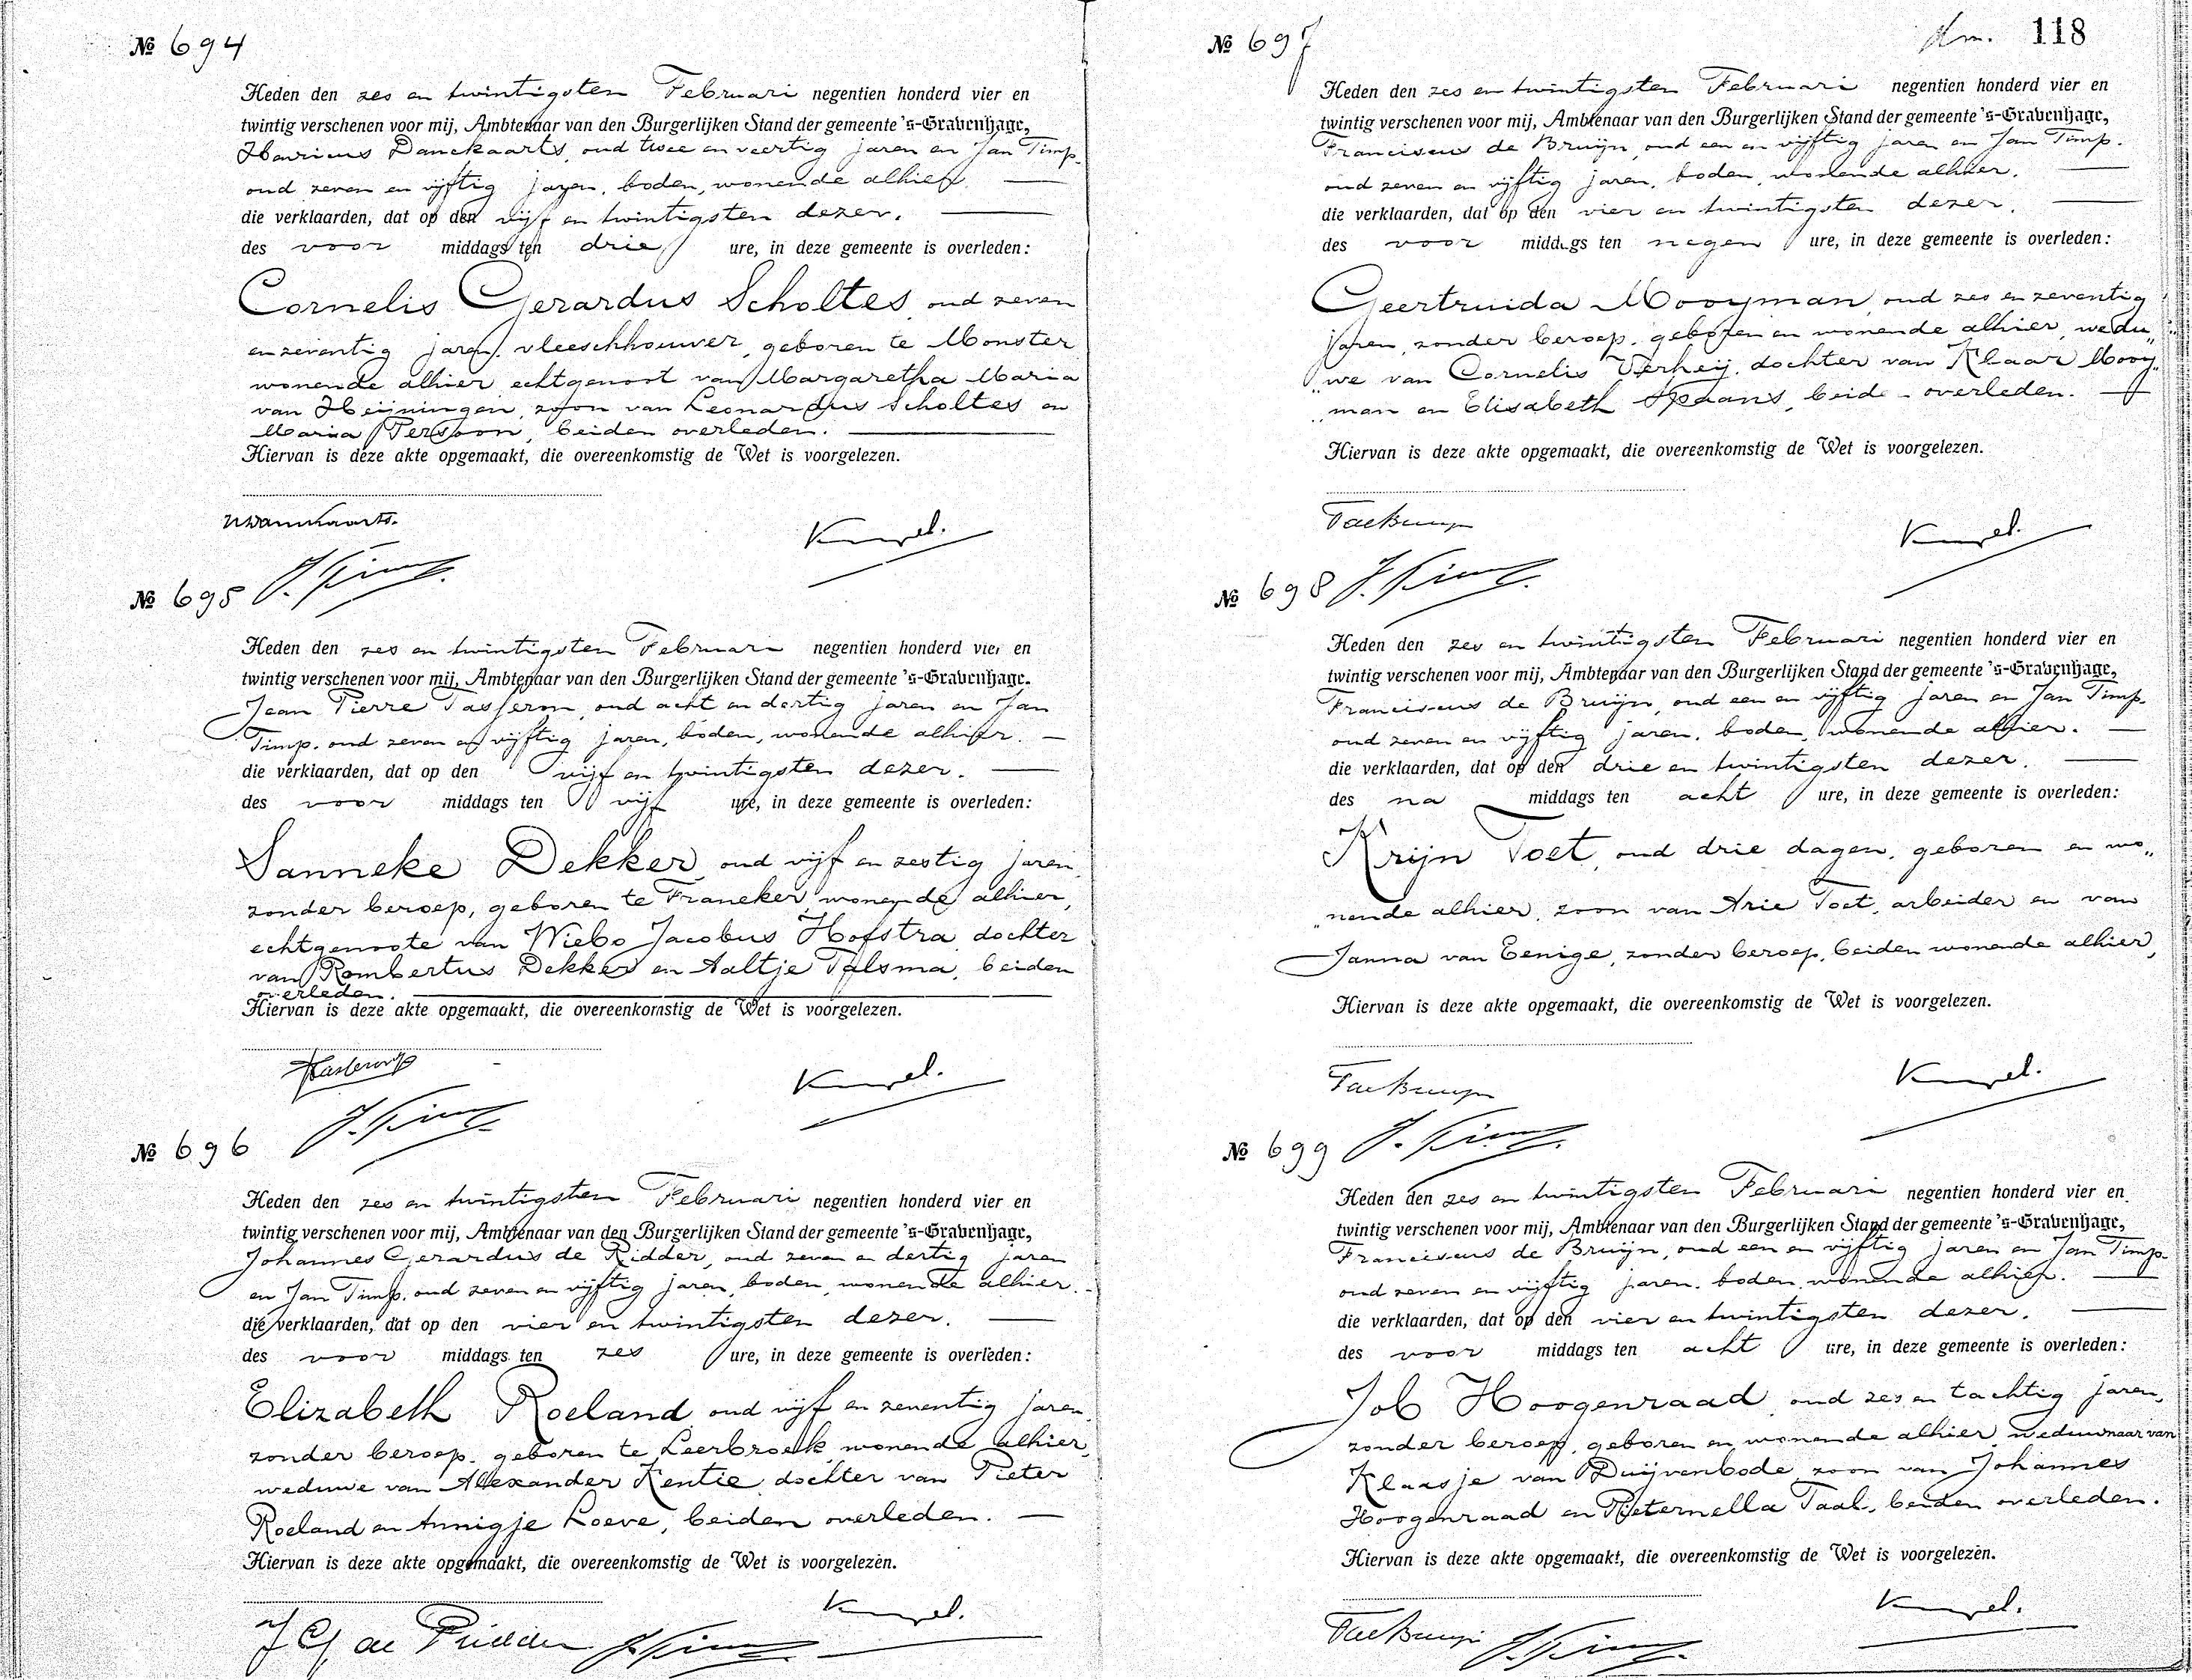 № 694
Heden den zes en twintigsten Februari negentien honderd vier en
twintig verschenen voor mij, Ambtenaar van den Burgerlijken Stand der gemeente 's-Gravenhage,
Danckaarts, oud twee en veertig jaren en Jan Timp.
oud zeven en vijftig jaren, boden, wonende alhier.
die verklaarden, dat op den vijf en twintigsten dezer.
des voor middags ten drie ure, in deze gemeente is overleden:
Cornelis Gerardus Scholtes, oud zeven
en zeventig jaren, vleeschhouwer, geboren te Monster
wonende alhier echtgenoot van Margaretha Maria
van Heijningen, zoon van Leonardus Scholtes en
Maria Persoon, beiden overleden.
Hiervan is deze akte opgemaakt, die overeenkomstig de Wet is voorgelezen.
J. Timp.
№ 695
Heden den zes en twintigsten Februari negentien honderd vier en
twintig verschenen voor mij, Ambtenaar van den Burgerlijken Stand der gemeente 's-Gravenhage.
Jean Pierre Tasseron, oud acht en dertig jaren en Jan
Timp. oud zeven en vijftig jaren, boden, wonende alhier.
die verklaarden, dat op den vijf en twintigsten dezer.
des voor middags ten vijf ure, in deze gemeente is overleden:
Sanneke Dekker, oud vijf en zestig jaren,
zonder beroep, geboren te Franeker wonende alhier,
echtgenoote van Wiebo Jacobus Hofstra, dochter
van Rombertus Dekker en Aaltje Talsma, beiden
overleden.
Hiervan is deze akte opgemaakt, die overeenkomstig de Wet is voorgelezen.
J. Timp.
№ 696
Heden den zes en twintigsten Februari negentien honderd vier en
twintig verschenen voor mij, Ambtenaar van den Burgerlijken Stand der gemeente 's-Gravenhage,
Johannes Gerardus de Ridder, oud zeven en dertig jaren
en Jan Timp. oud zeven en vijftig jaren, boden, wonende alhier.
die verklaarden, dat op den vier en twintigsten dezer.
des voor middags ten zes ure, in deze gemeente is overleden:
Elizabeth Roeland oud vijf en zeventig jaren,
zonder beroep, geboren te Leerbroek, wonende alhier,
weduwe van Alexander Kentie, dochter van Pieter
Roeland en Annigje Loeve, beiden overleden.
Hiervan is deze akte opgemaakt, die overeenkomstig de Wet is voorgelezen.
J G de Ridder J. Timp.
118
№ 697
Heden den zes en twintigsten Februari negentien honderd vier en
twintig verschenen voor mij, Ambtenaar van den Burgerlijken Stand der gemeente 's-Gravenhage,
Franciscus de Bruijn, oud een en vijftig jaren en Jan Timp.
oud zeven en vijftig jaren, boden, wonende alhier.
die verklaarden, dat op den vier en twintigsten dezer.
des voor middags ten negen ure, in deze gemeente is overleden:
Geertruida Mooyman, oud zes en zeventig
jaren, zonder beroep, geboren en wonende alhier, wedu„
„we van Cornelis Verheij, dochter van Klaar Mooy„
„man en Elisabeth Spaans, beide overleden.
Hiervan is deze akte opgemaakt, die overeenkomstig de Wet is voorgelezen.
J. Timp.
№ 698
Heden den zes en twintigsten Februari negentien honderd vier en
twintig verschenen voor mij, Ambtenaar van den Burgerlijken Stand der gemeente 's-Gravenhage,
Franciscus de Bruijn, oud een en vijftig jaren en Jan Timp.
oud zeven en vijftig jaren, boden, wonende alhier.
die verklaarden, dat op den drie en twintigsten dezer.
des na middags ten acht ure, in deze gemeente is overleden:
Krijn Toet, oud drie dagen, geboren en wo„
„nende alhier, zoon van Arie Toet, arbeider en van
Janna van Eenige, zonder beroep, beiden wonende alhier,
Hiervan is deze akte opgemaakt, die overeenkomstig de Wet is voorgelezen.
J. Timp.
№ 699
Heden den zes en twintigsten Februari negentien honderd vier en
twintig verschenen voor mij, Ambtenaar van den Burgerlijken Stand der gemeente 's-Gravenhage,
Franciscus de Bruijn, oud een en vijftig jaren en Jan Timp.
oud zeven en vijftig jaren, boden, wonende alhier.
die verklaarden, dat op den vier en twintigsten dezer.
des voor middags ten acht ure, in deze gemeente is overleden:
Job Hoogenraad, oud zes en tachtig jaren,
zonder beroep, geboren en wonende alhier weduwnaar van
Klaasje van Duijvenbode, zoon van Johannes
Hoogenraad en Pieternella Taal, beiden overleden.
Hiervan is deze akte opgemaakt, die overeenkomstig de Wet is voorgelezen.
J. Timp.